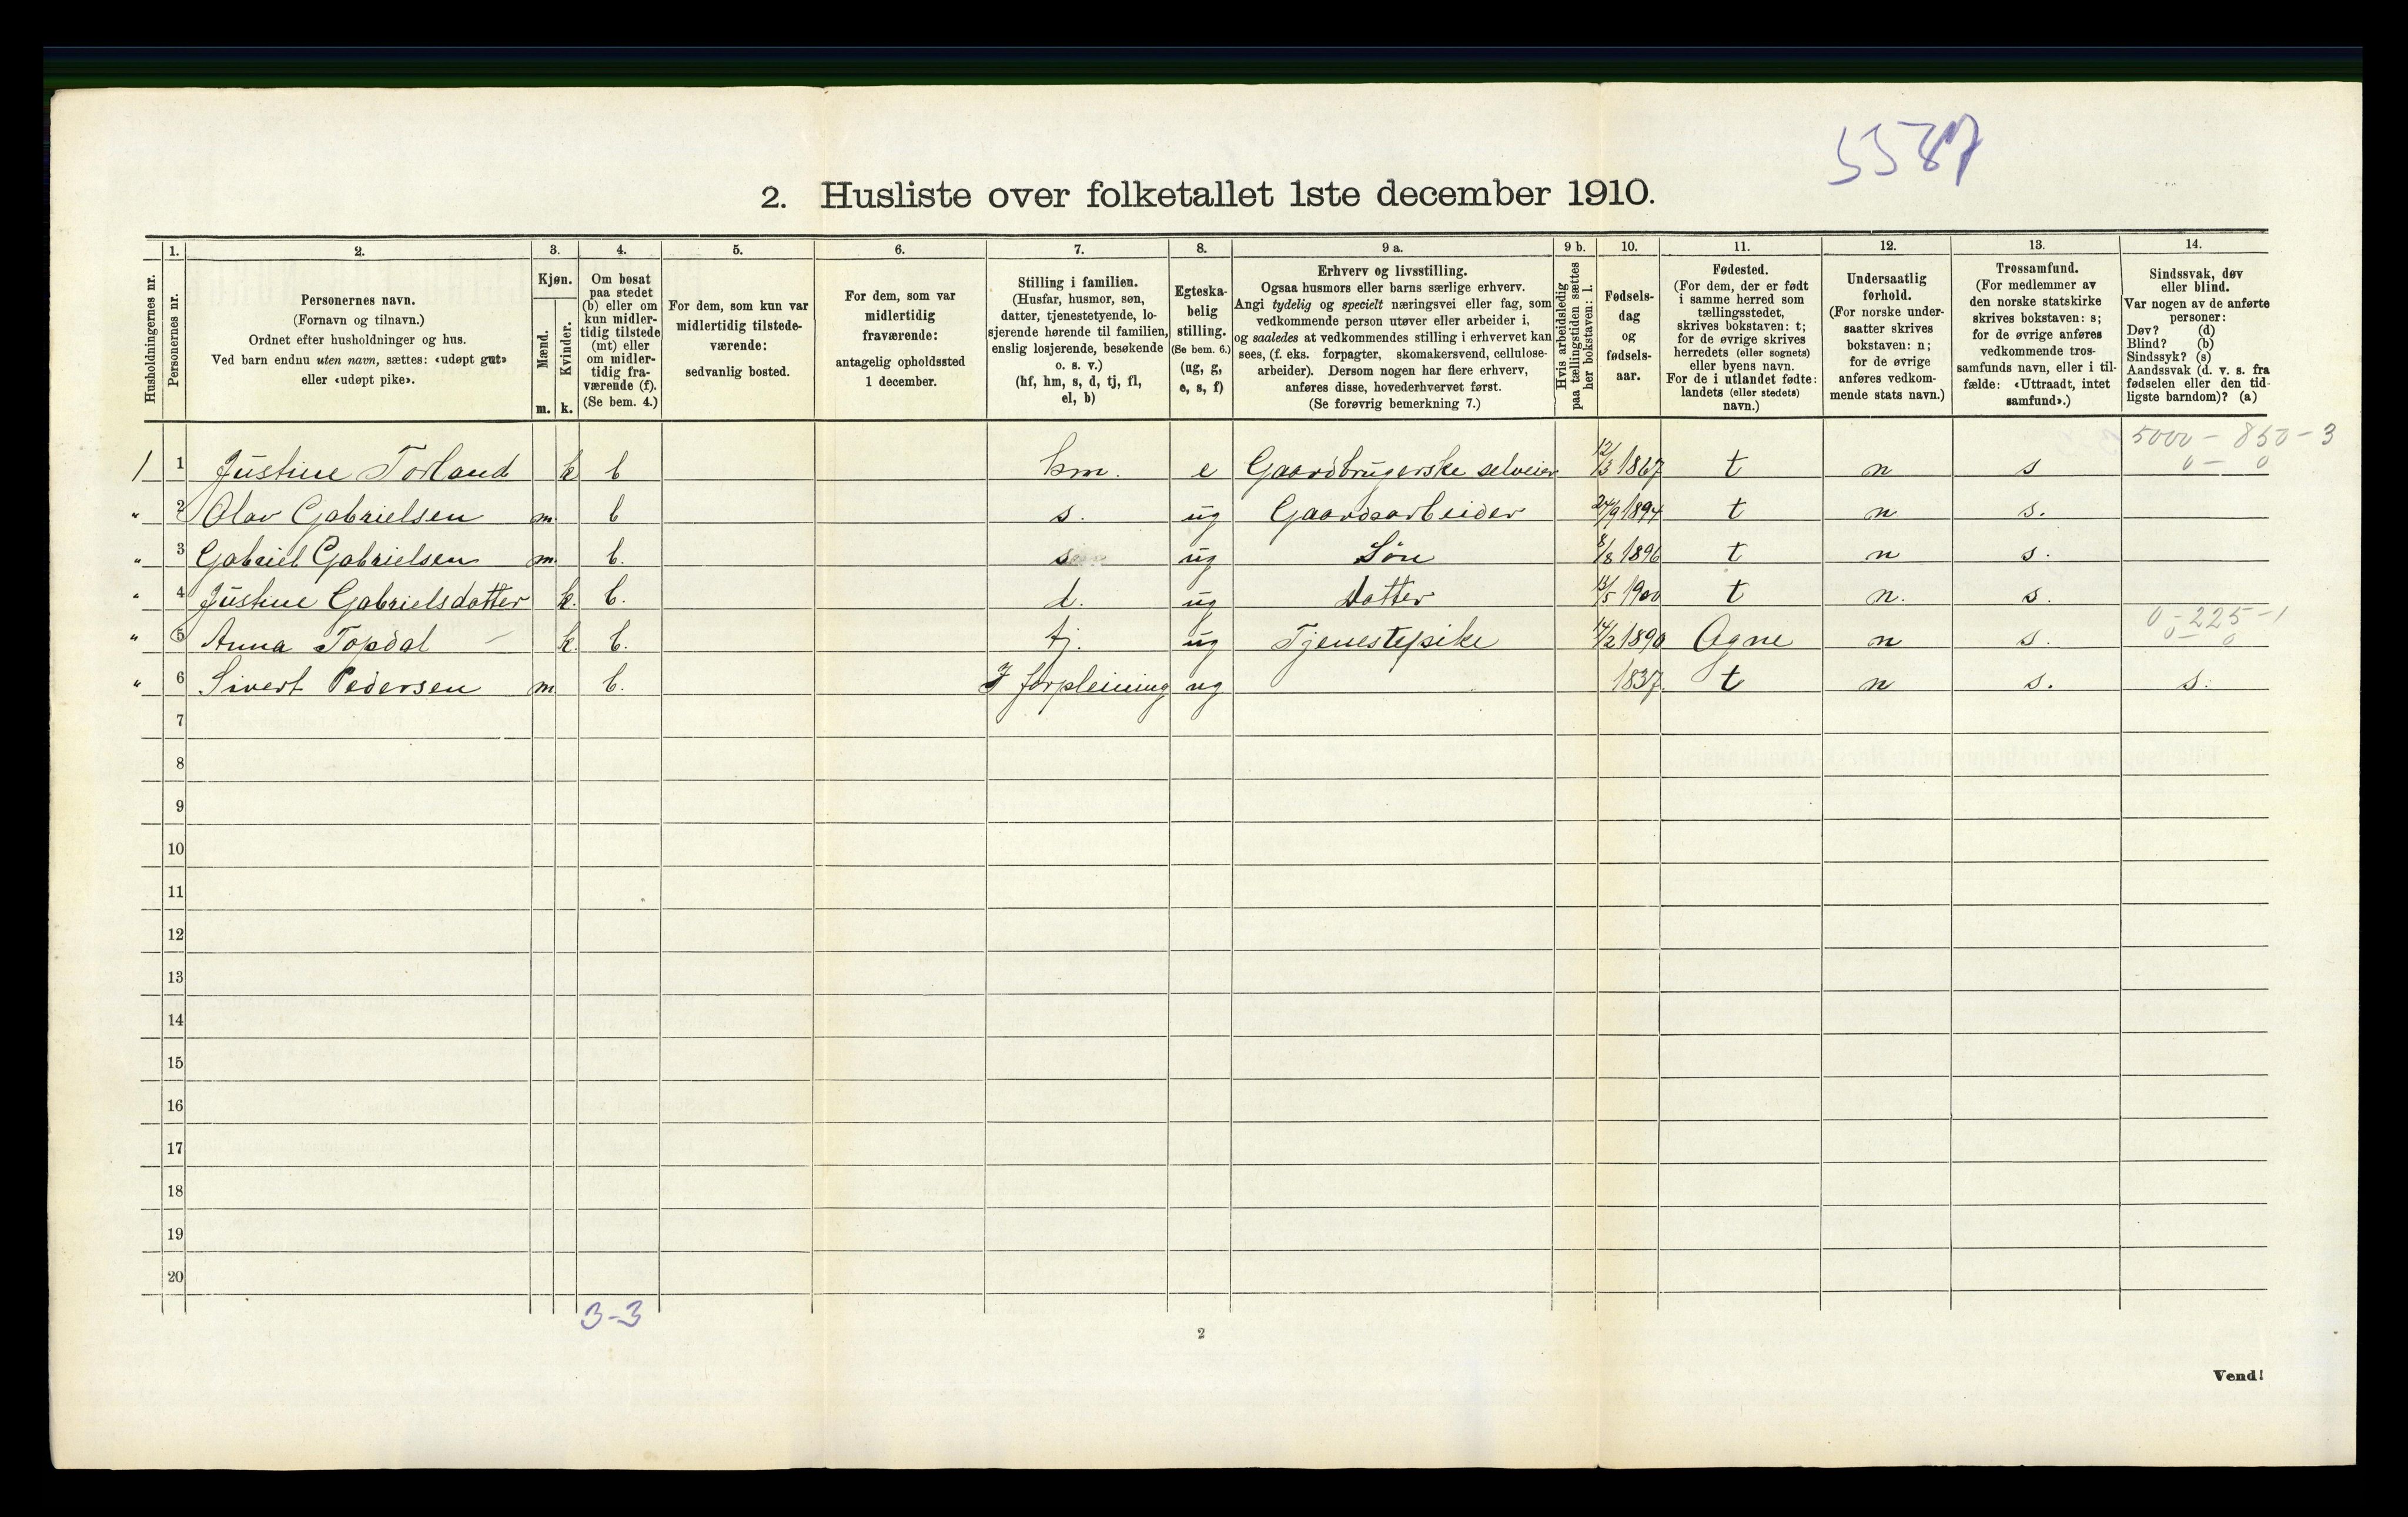 5587
2. Husliste over folketallet 1ste december 1910.
Husholdningernes nr.
1.
Personernes nr.
2.
Personernes navn.
(Fornavn og tilnavn.)
Ordnet efter husholdninger og hus.
Ved barn endnu uten navn, sættes: «udøpt gut»
eller «udøpt pike».
3.
Kjøn.
Mænd.
Kvinder.
m. k.
4.
Om bosat
paa stedet
(b) eller om
kun midler-
tidig tilstede
(mt) eller
om midler-
tidig fra-
værende (f).
(Se bem. 4.)
5.
For dem, som kun var
midlertidig tilstede-
værende:
sedvanlig bosted.
6.
For dem, som var
midlertidig
fraværende:
antagelig opholdssted
1 december.
7.
Stilling i familien.
(Husfar, husmor, søn,
datter, tjenestetyende, lo-
sjerende hørende til familien,
enslig losjerende, besøkende
o. s. v.)
(hf, hm, s, d, tj, fl,
el, b)
8.
Egteska-
belig
stilling.
(Se bem. 6.)
(ug, g,
e, s, f)
9 a.
Erhverv og livsstilling.
Ogsaa husmors eller barns særlige erhverv.
Angi tydelig og specielt næringsvei eller fag, som
vedkommende person utøver eller arbeider i,
og saaledes at vedkommendes stilling i erhvervet kan
sees, (f. eks. forpagter, skomakersvend, cellulose-
arbeider). Dersom nogen har flere erhverv,
anføres disse, hovederhvervet først.
(Se forøvrig bemerkning 7.)
9 b.
Hvis arbeidsledig
paa tællingstiden sættes
her bokstaven: l.
10.
Fødsels-
dag
og
fødsels-
aar.
11.
Fødested.
(For dem, der er født
i samme herred som
tællingsstedet,
skrives bokstaven: t;
for de øvrige skrives
herredets (eller sognets)
eller byens navn.
For de i utlandet fødte:
landets (eller stedets)
navn.)
12.
Undersaatlig
forhold.
(For norske under-
saatter skrives
bokstaven: n;
for de øvrige
anføres vedkom-
mende stats navn.)
13.
Trossamfund.
(For medlemmer av
den norske statskirke
skrives bokstaven: s;
for de øvrige anføres
vedkommende tros-
samfunds navn, eller i til-
fælde: «Uttraadt, intet
samfund».)
14.
Sindssvak, døv
eller blind.
Var nogen av de anførte
personer:
Døv? (d)
Blind? (b)
Sindssyk? (s)
Aandssvak (d. v. s. fra
fødselen eller den tid-
ligste barndom)? (a)
5000 - 850 - 3
1 1 Justine Torland k b hm. e Gaardbrugerske selveier 12/3 1867 t n s 0 - 0
" 2 Olav Gabrielsen m. b s. ug Gaardsarbeider 24/9 1894 t n s.
" 3 Gabriel Gabrielsen m. b. s ug Søn 8/8 1896 t n s.
" 4 Justine Gabrielsdatter k. b. d. ug Datter 13/5 1900 t n. s.
0 - 225 - 1
" 5 Anna Topdal - k. b. tj. ug Tjenestepike 14/2 1890 Ogne n s. 0 - 0
" 6 Sivert Pedersen m b. I forpleining ug 1837. t n s. s.
7
8
9
10
11
12
13
14
15
16
17
18
19
20
3-3
2
Vend!